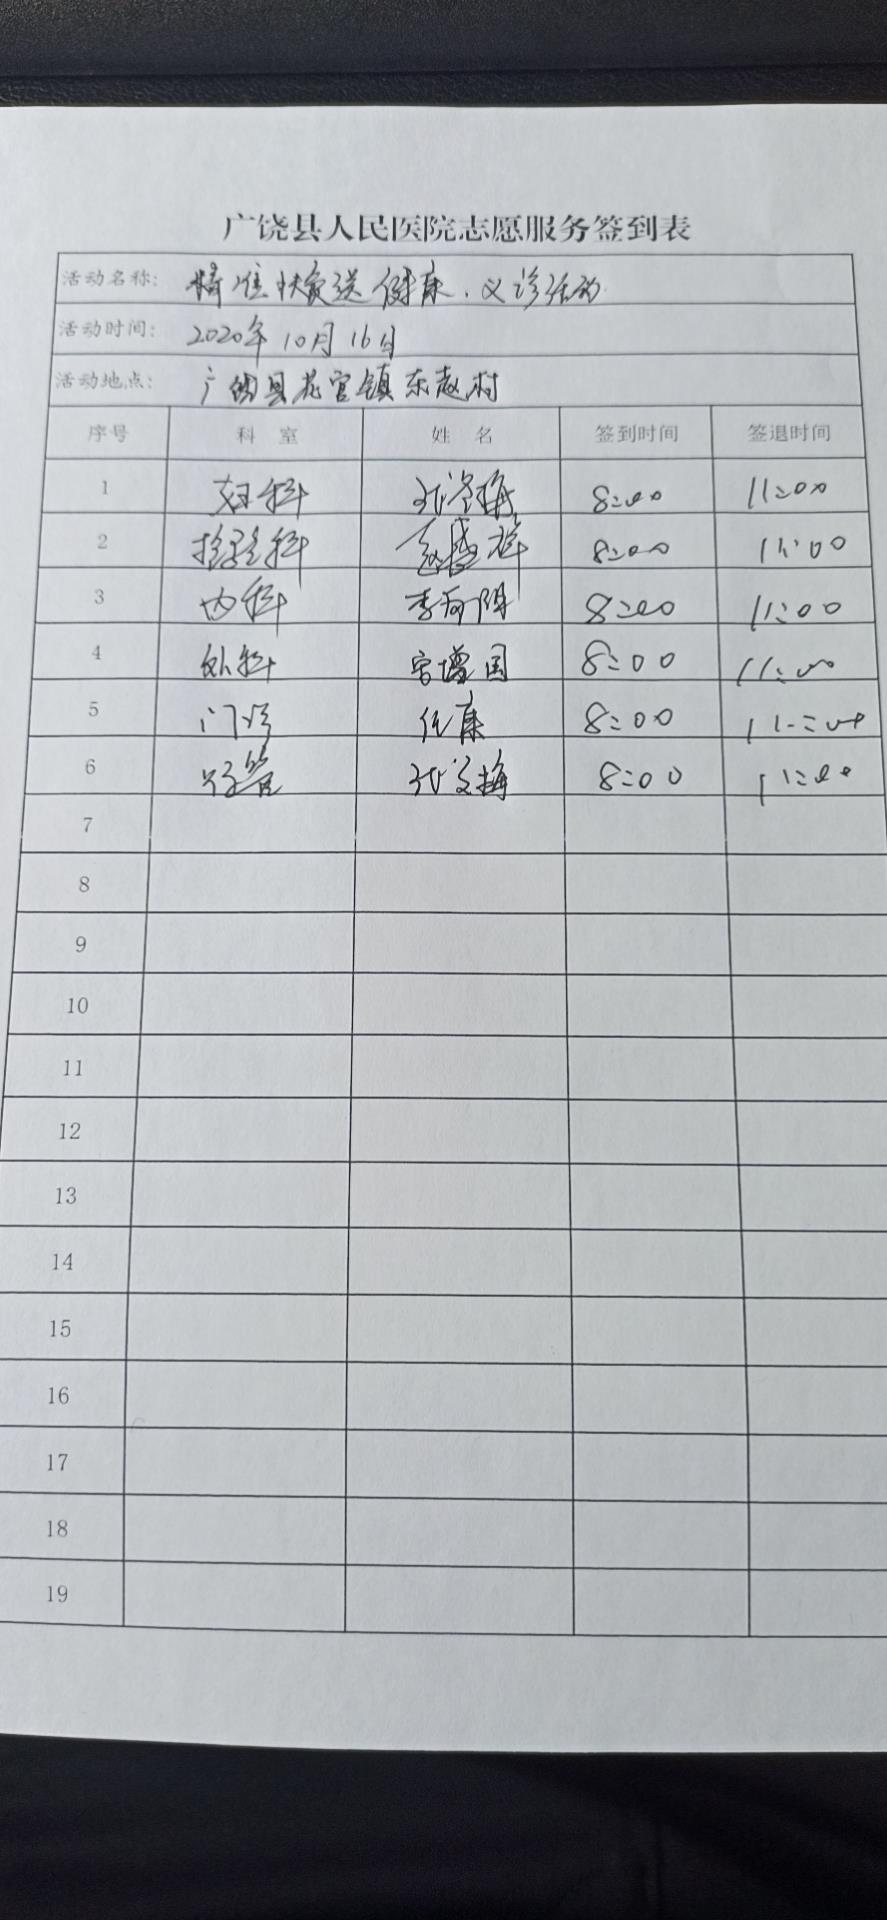 广饶县人民医院志愿服务签到表
活动名称: 精准扶贫送健康.义诊活动
活动时间: 2020年10月16日
活动地点: 广饶县花官镇东赵村
序号 科室 姓名 签到时间 签退时间
1 妇科 8:00 11:00
2 检验科 8:00 11:00
3 内科 8:00 11:00
4 外科 增国 8:00 11:00
5 门诊 任康 8:00 11:00
6 张文梅 8:00 11:00
7
8
9
10
11
12
13
14
15
16
17
18
19